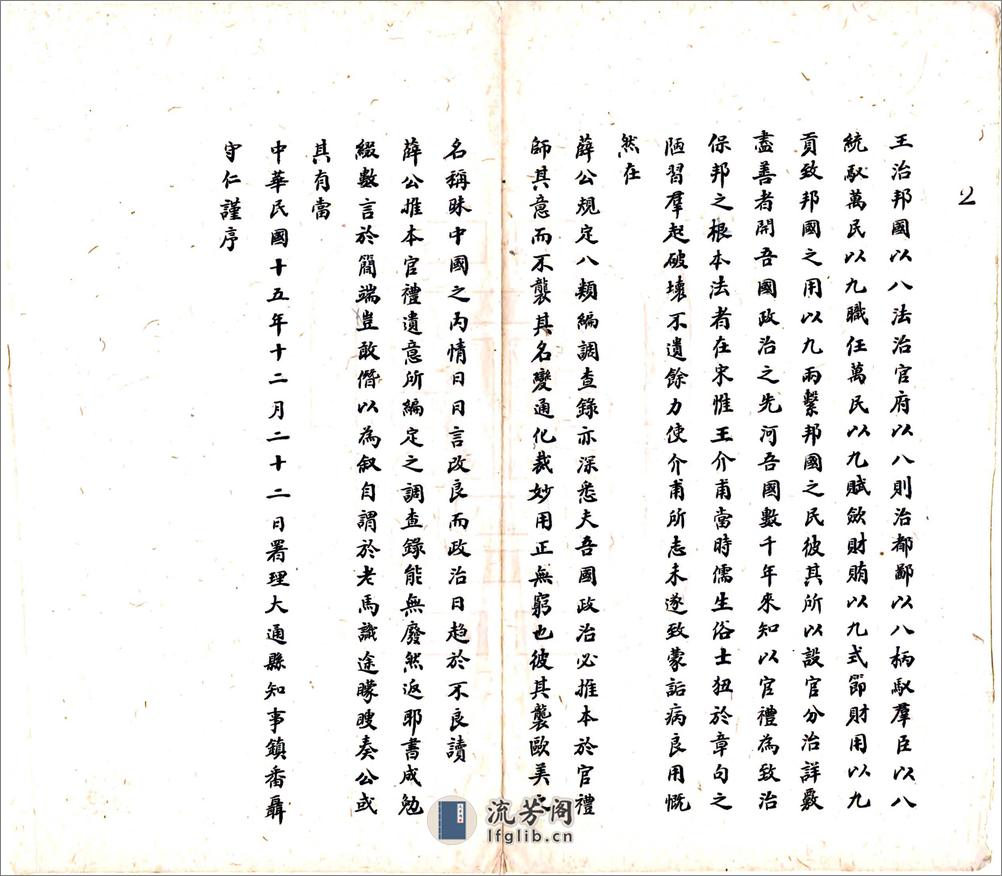 2
王治邦國以八法治官府以八則治都鄙以八柄馭羣臣以八
統馭萬民以九職任萬民以九賦斂財賄以九式節財用以九
貢致邦國之用以九兩繫邦國之民彼其所以設官分治詳覈
盡善者開吾國政治之先河吾國數千年來知以官禮為致治
保邦之根本法者在宋惟王介甫當時儒生俗士狃於章句之
陋習羣起破壞不遺餘力使介甫所志未遂致蒙詬病良用慨
然在
薛公規定八類編調查錄亦深悉夫吾國政治必推本於官禮
師其意而不襲其名變通化裁妙用正無窮也彼其襲歐美之
名稱昧中國之內情日日言改良而政治日趨於不良讀
薛公推本官禮遺意所編定之調查錄能無廢然返耶書成勉
綴數言於簡端豈敢僭以為叙自謂於老馬識途矇瞍奏公或
其有當
中華民國十五年十二月二十二日署理大通縣知事鎮番聶
守仁謹序
流芳阁
lfglib.cn